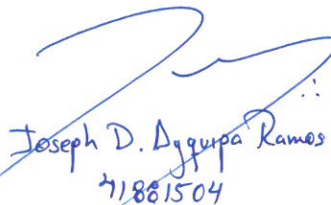 Joseph D. Ayquipa Ramos
41881504